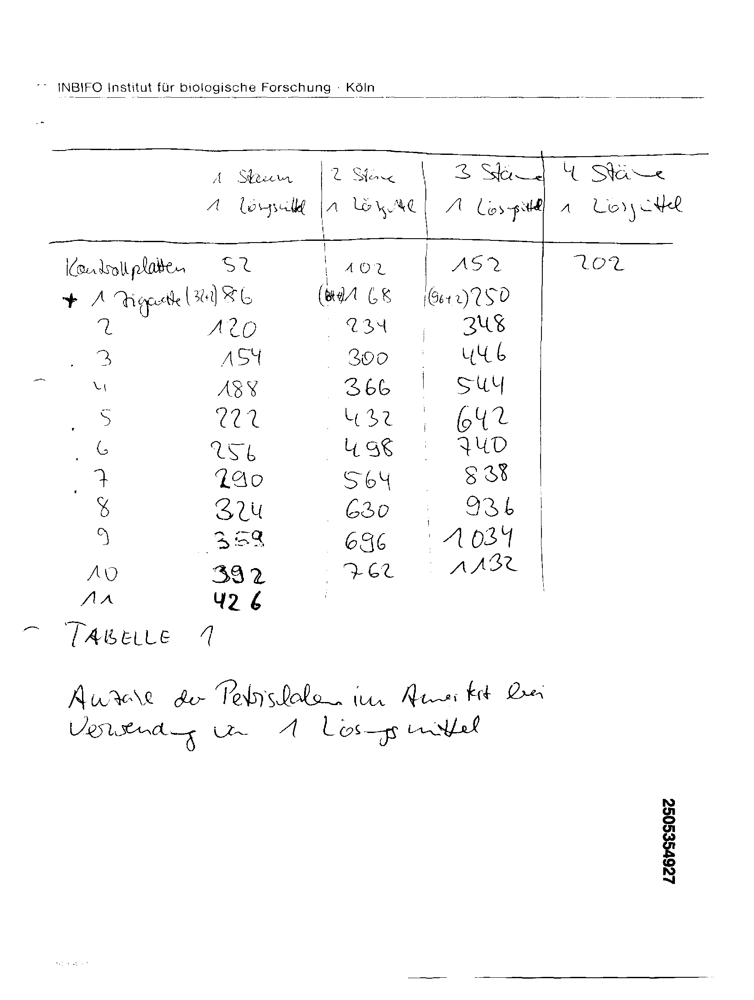 INBIFO Institut für biologische Forschung · Köln
1 Stamm 2 Stäme 3 Stäme 4 Stäme
1 Lösgsmittel 1 Lösgmittel 1 Lösgmittel 1 Lösgmittel
Kontrollplatten 52 102 152 202
+ 1 Zigarette (32+2) 86 168 (96+2) 250
2 120 234 348
3 154 300 446
4 188 366 544
5 222 432 642
6 256 498 740
7 290 564 838
8 324 630 936
9 358 696 1034
10 392 762 1132
11 426
TABELLE 1
Anzahl der Petrischalen im Amestest bei
Verwendung von 1 Lösungsmittel
2505354927